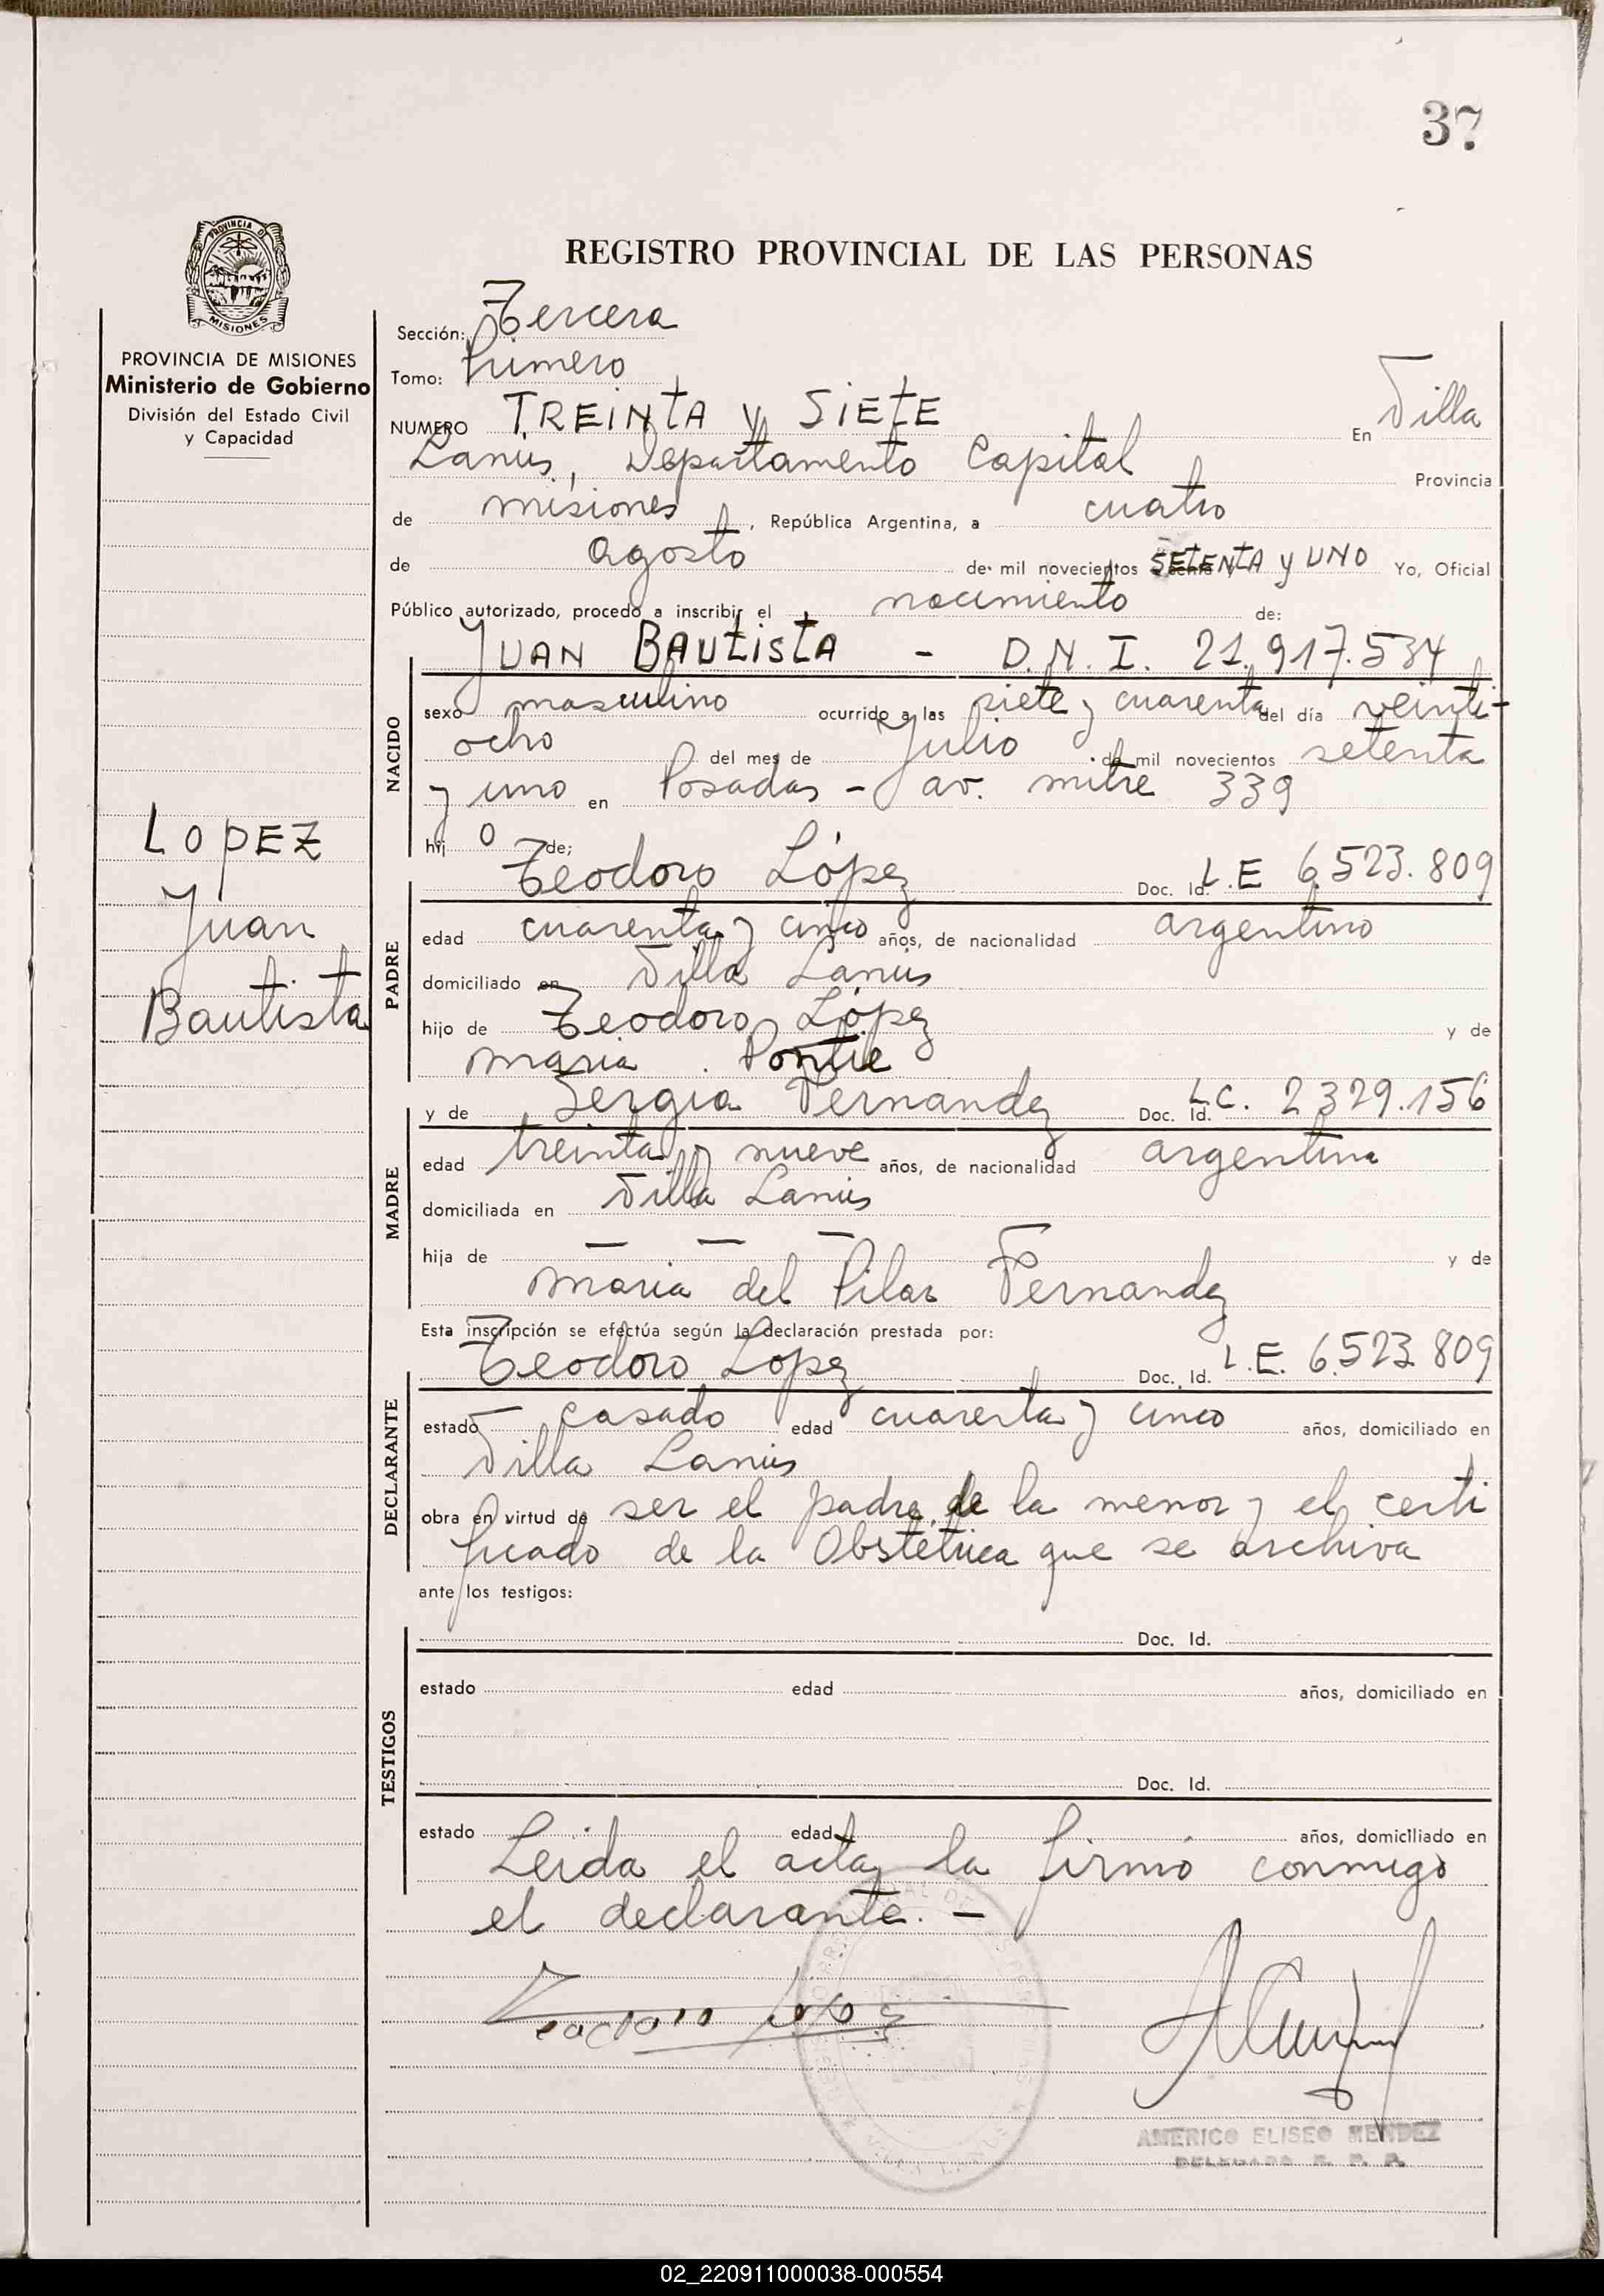 37
PROVINCIA DE
MISIONES
PROVINCIA DE MISIONES
Ministerio de Gobierno
División del Estado Civil
y Capacidad
LOPEZ
Juan
Bautista
REGISTRO PROVINCIAL DE LAS PERSONAS
Sección: Tercera
Tomo: Primero
NUMERO TREINTA y SIETE En Villa
Lanús, Departamento Capital Provincia
de misiones, República Argentina, a cuatro
de agosto de mil novecientos SETENTA y UNO Yo, Oficial
Público autorizado, procedo a inscribir el nacimiento de:
JUAN BAUTISTA - D.N.I. 21.917.534
NACIDO
sexo masculino ocurrido a las siete y cuarenta del día veinti-
ocho del mes de Julio de mil novecientos setenta
y uno en Posadas - av. mitre 339
hij o de;
Teodoro López Doc. Id. L.E 6.523.809
PADRE
edad cuarenta y cinco años, de nacionalidad argentino
domiciliado en Villa Lanús
hijo de Teodoro López y de
maria
y de Sergia Fernandez Doc. Id. L.C. 2.329.156
MADRE
edad treinta y nueve años, de nacionalidad argentina
domiciliada en Villa Lanús
hija de — — — y de
maria del Pilar Fernandez
Esta inscripción se efectúa según la declaración prestada por:
Teodoro Lopez Doc. Id. L.E. 6.523.809
DECLARANTE
estado casado edad cuarenta y cinco años, domiciliado en
Villa Lanús
obra en virtud de ser el padre de la menor y el certi
ficado de la Obstétrica que se archiva
ante los testigos:
Doc. Id.
TESTIGOS
estado edad años, domiciliado en
Doc. Id.
estado edad años, domiciliado en
Leida el acta, la firmó conmigo
el declarante. -
Teodoro Lopez
AMERICO ELISEO MENDEZ
DELEGADO R. P. P.
02_220911000038-000554